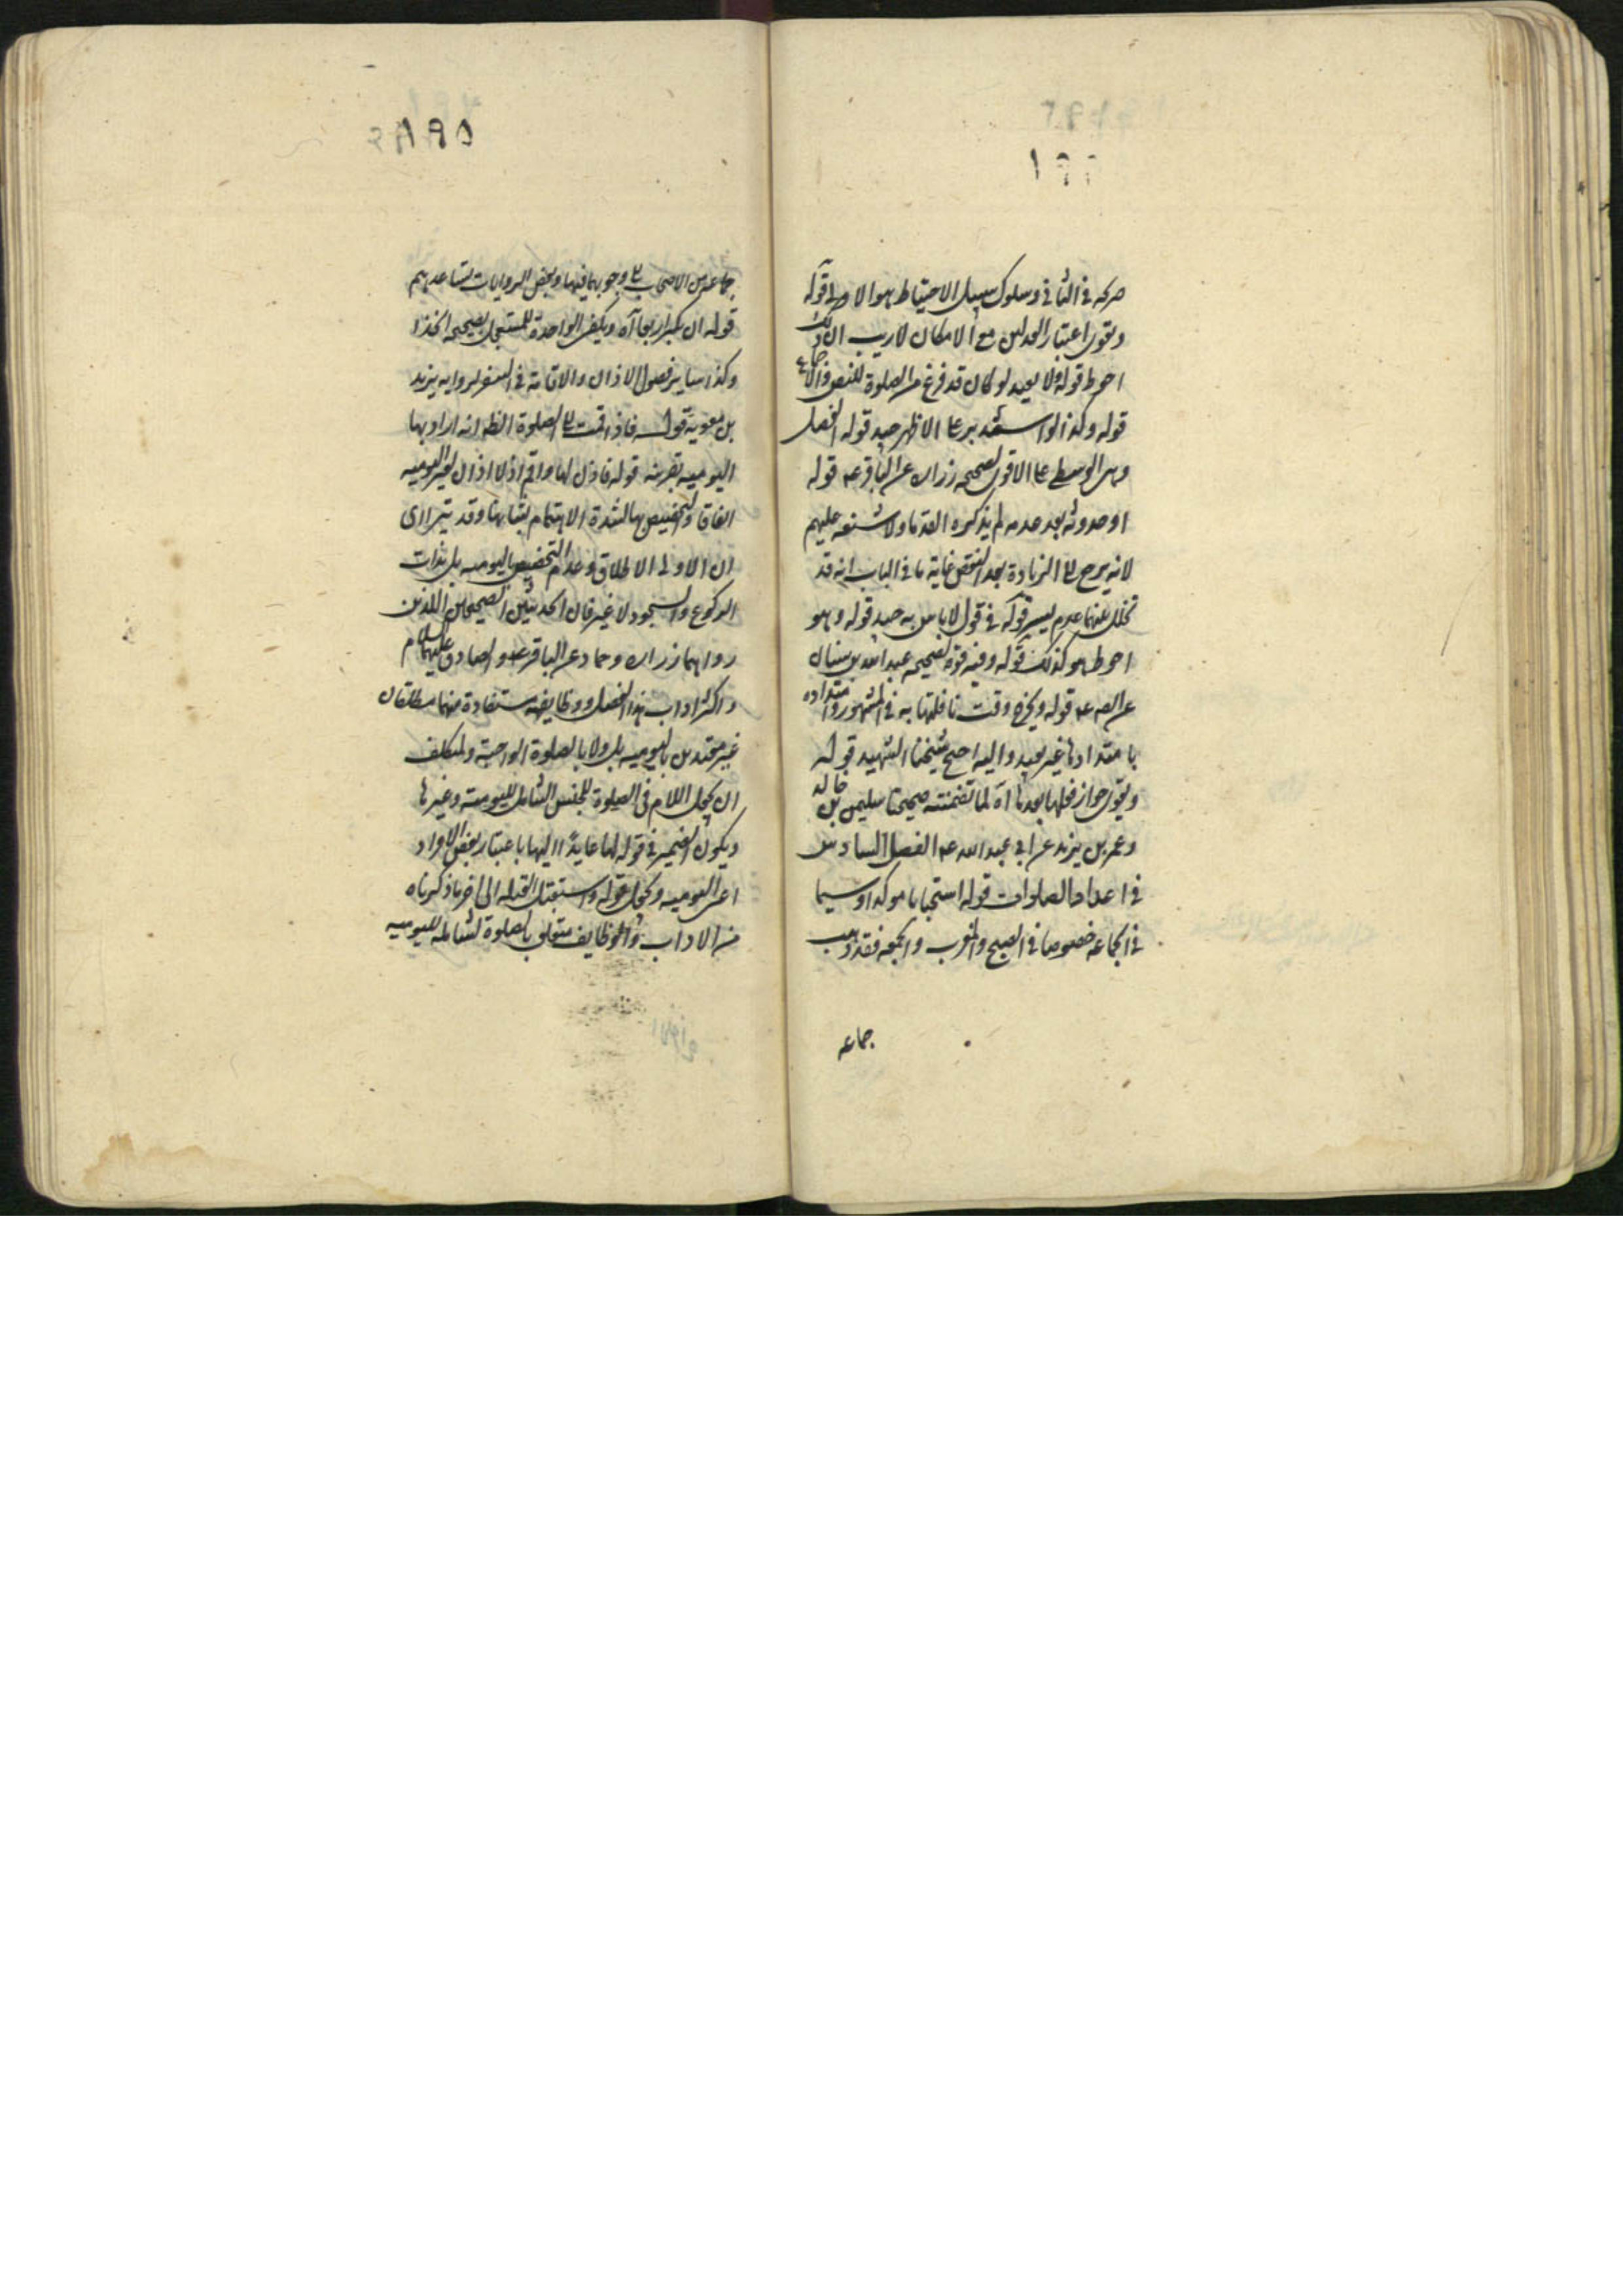 صريحة في الثاني وسلوك سبيل الاحتياط هو الاولى قوله
ويقوى اعتبار العدلين مع الامكان لا ريب ان ذلك
احوط قوله ولا يعيد لو كان قد فرغ من الصلوة للنص والاجماع
قوله وكذا لو استدبر على الاظهر جيد قوله الفصل
وهى الوسطى على الاقوى لصحيحة زراره عن الباقر عه قوله
او حدوثه بعد عدمه لم يذكره القدما ولا شنعه عليهم
لانه يرجع الى الزيادة بعد النقص غاية ما في الباب انه قد
تخلل بينهما عدم يسير قوله في قول لا باس به جيد قوله وهو
احوط هو كذلك قوله وفيه قوة لصحيحه عبد الله بن سنان
عن الصه عه قوله ويخرج وقت نافلتها به في المشهور وامتداده
بامتدادها غير بعيد واليه احتج شيخنا الشهيد قوله
ويقوى جواز فعلها بعدها آه لما تضمنته صحيحتا سليمن بن خالد
وعمر بن يزيد عن ابي عبد الله عه الفصل السادس
في اعداد الصلوات قوله استحبابا موكدا وسيما
في الجماعه خصوصا في الصبح والمغرب والجمعه فقد ذهب
جماعه
جماعة من الاصحاب الى وجوبهما فيها وبعض الروايات تساعدهم
قوله ان يكبر اربعا آه ويكفى الواحدة للمستعجل لصحيحة الحذا
وكذا سائر فصول الاذان والاقامة في السفر لرواية يزيد
بن معوية قوله فاذا قمت الى الصلوة الظ انه اراد بها
اليومية بقرينة قوله فاذن لها واقم اذ لا اذان لغير اليوميه
اتفاقا والتخصيص بها لشدة الاهتمام بشانها وقد يترااى
ان الاولى الاطلاق وعدم التخصيص باليوميه بل بذات
الركوع والسجود لا غير فان الحديثين الصحيحين اللذين
رواهما زراره وحماد عن الباقر عه والصادق عليهما السلام
واكثر اداب هذا الفصل ووظايفه مستفادة منهما مطلقان
غير مقيدين باليوميه بل ولا بالصلوة الواجبة ولمتكلف
ان يجعل اللام في الصلوة للجنس الشامل لليومية وغيرها
ويكون الضمير في قوله لها عايدًا اليها باعتبار بعض الافراد
اعنى اليوميه ويجعل قوله واستقبل القبله الى اخر ما ذكرناه
من الاداب والوظايف متعلق بالصلوة الشامله لليوميه